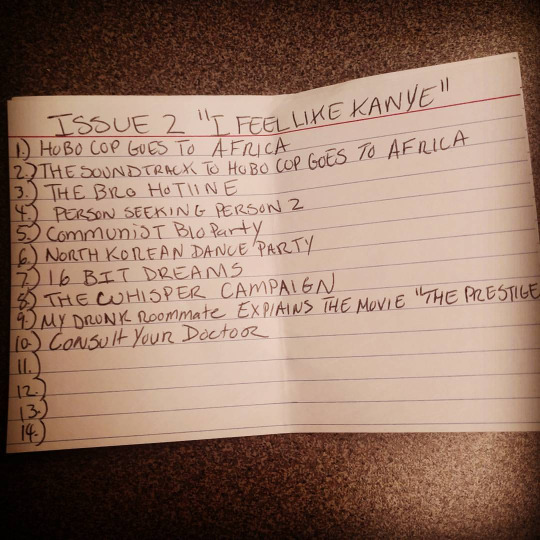 ISSUE 2 "I FEEL LIKE KANYE"
1.) HOBO COP GOES TO AFRICA
2.) THE SOUNDTRACK TO HOBO COP GOES TO AFRICA
3.) THE BRO HOTLINE
4.) PERSON SEEKING PERSON 2
5.) COMMUNIST Party
6.) NORTH KOREAN DANCE PARTY
7.) 16 BIT DREAMS
8.) THE WHISPER CAMPAIGN
9.) MY DRUNK ROOMMATE EXPLAINS THE MOVIE "THE PRESTIGE
10.) CONSULT YOUR DOCTOOR
11.
12.)
13.)
14.)